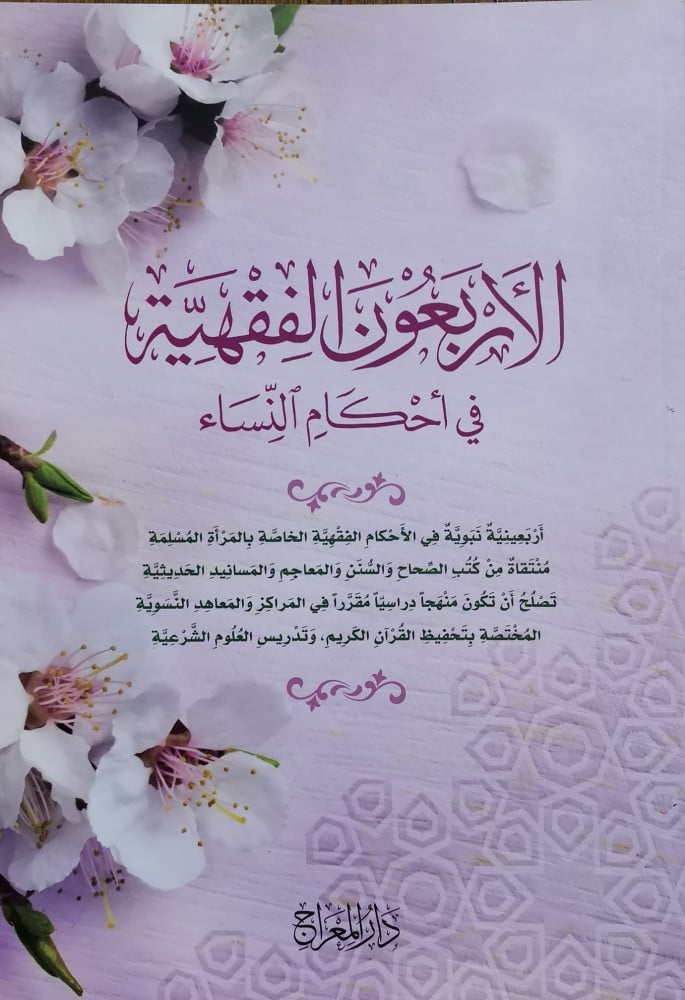 الأَرْبَعُونَ الفِقْهِيَّة
في أَحْكَامِ ٱلنِّسَاء
أَرْبَعِينِيَّةٌ نَبَوِيَّةٌ فِي الأَحْكامِ الفِقْهِيَّةِ الخاصَّةِ بِالمَرْأَةِ المُسْلِمَةِ
مُنْتَقاةٌ مِنْ كُتُبِ الصِّحاحِ وَالسُّنَنِ وَالمَعاجِمِ وَالمَسانِيدِ الحَدِيثِيَّةِ
تَصْلُحُ أَنْ تَكُونَ مَنْهَجاً دِراسِيّاً مُقَرَّراً فِي المَراكِزِ وَالمَعاهِدِ النَّسَوِيَّةِ
المُخْتَصَّةِ بِتَحْفِيظِ القُرْآنِ الكَرِيمِ، وَتَدْرِيسِ العُلُومِ الشَّرْعِيَّةِ
دَارُ المِعْرَاج